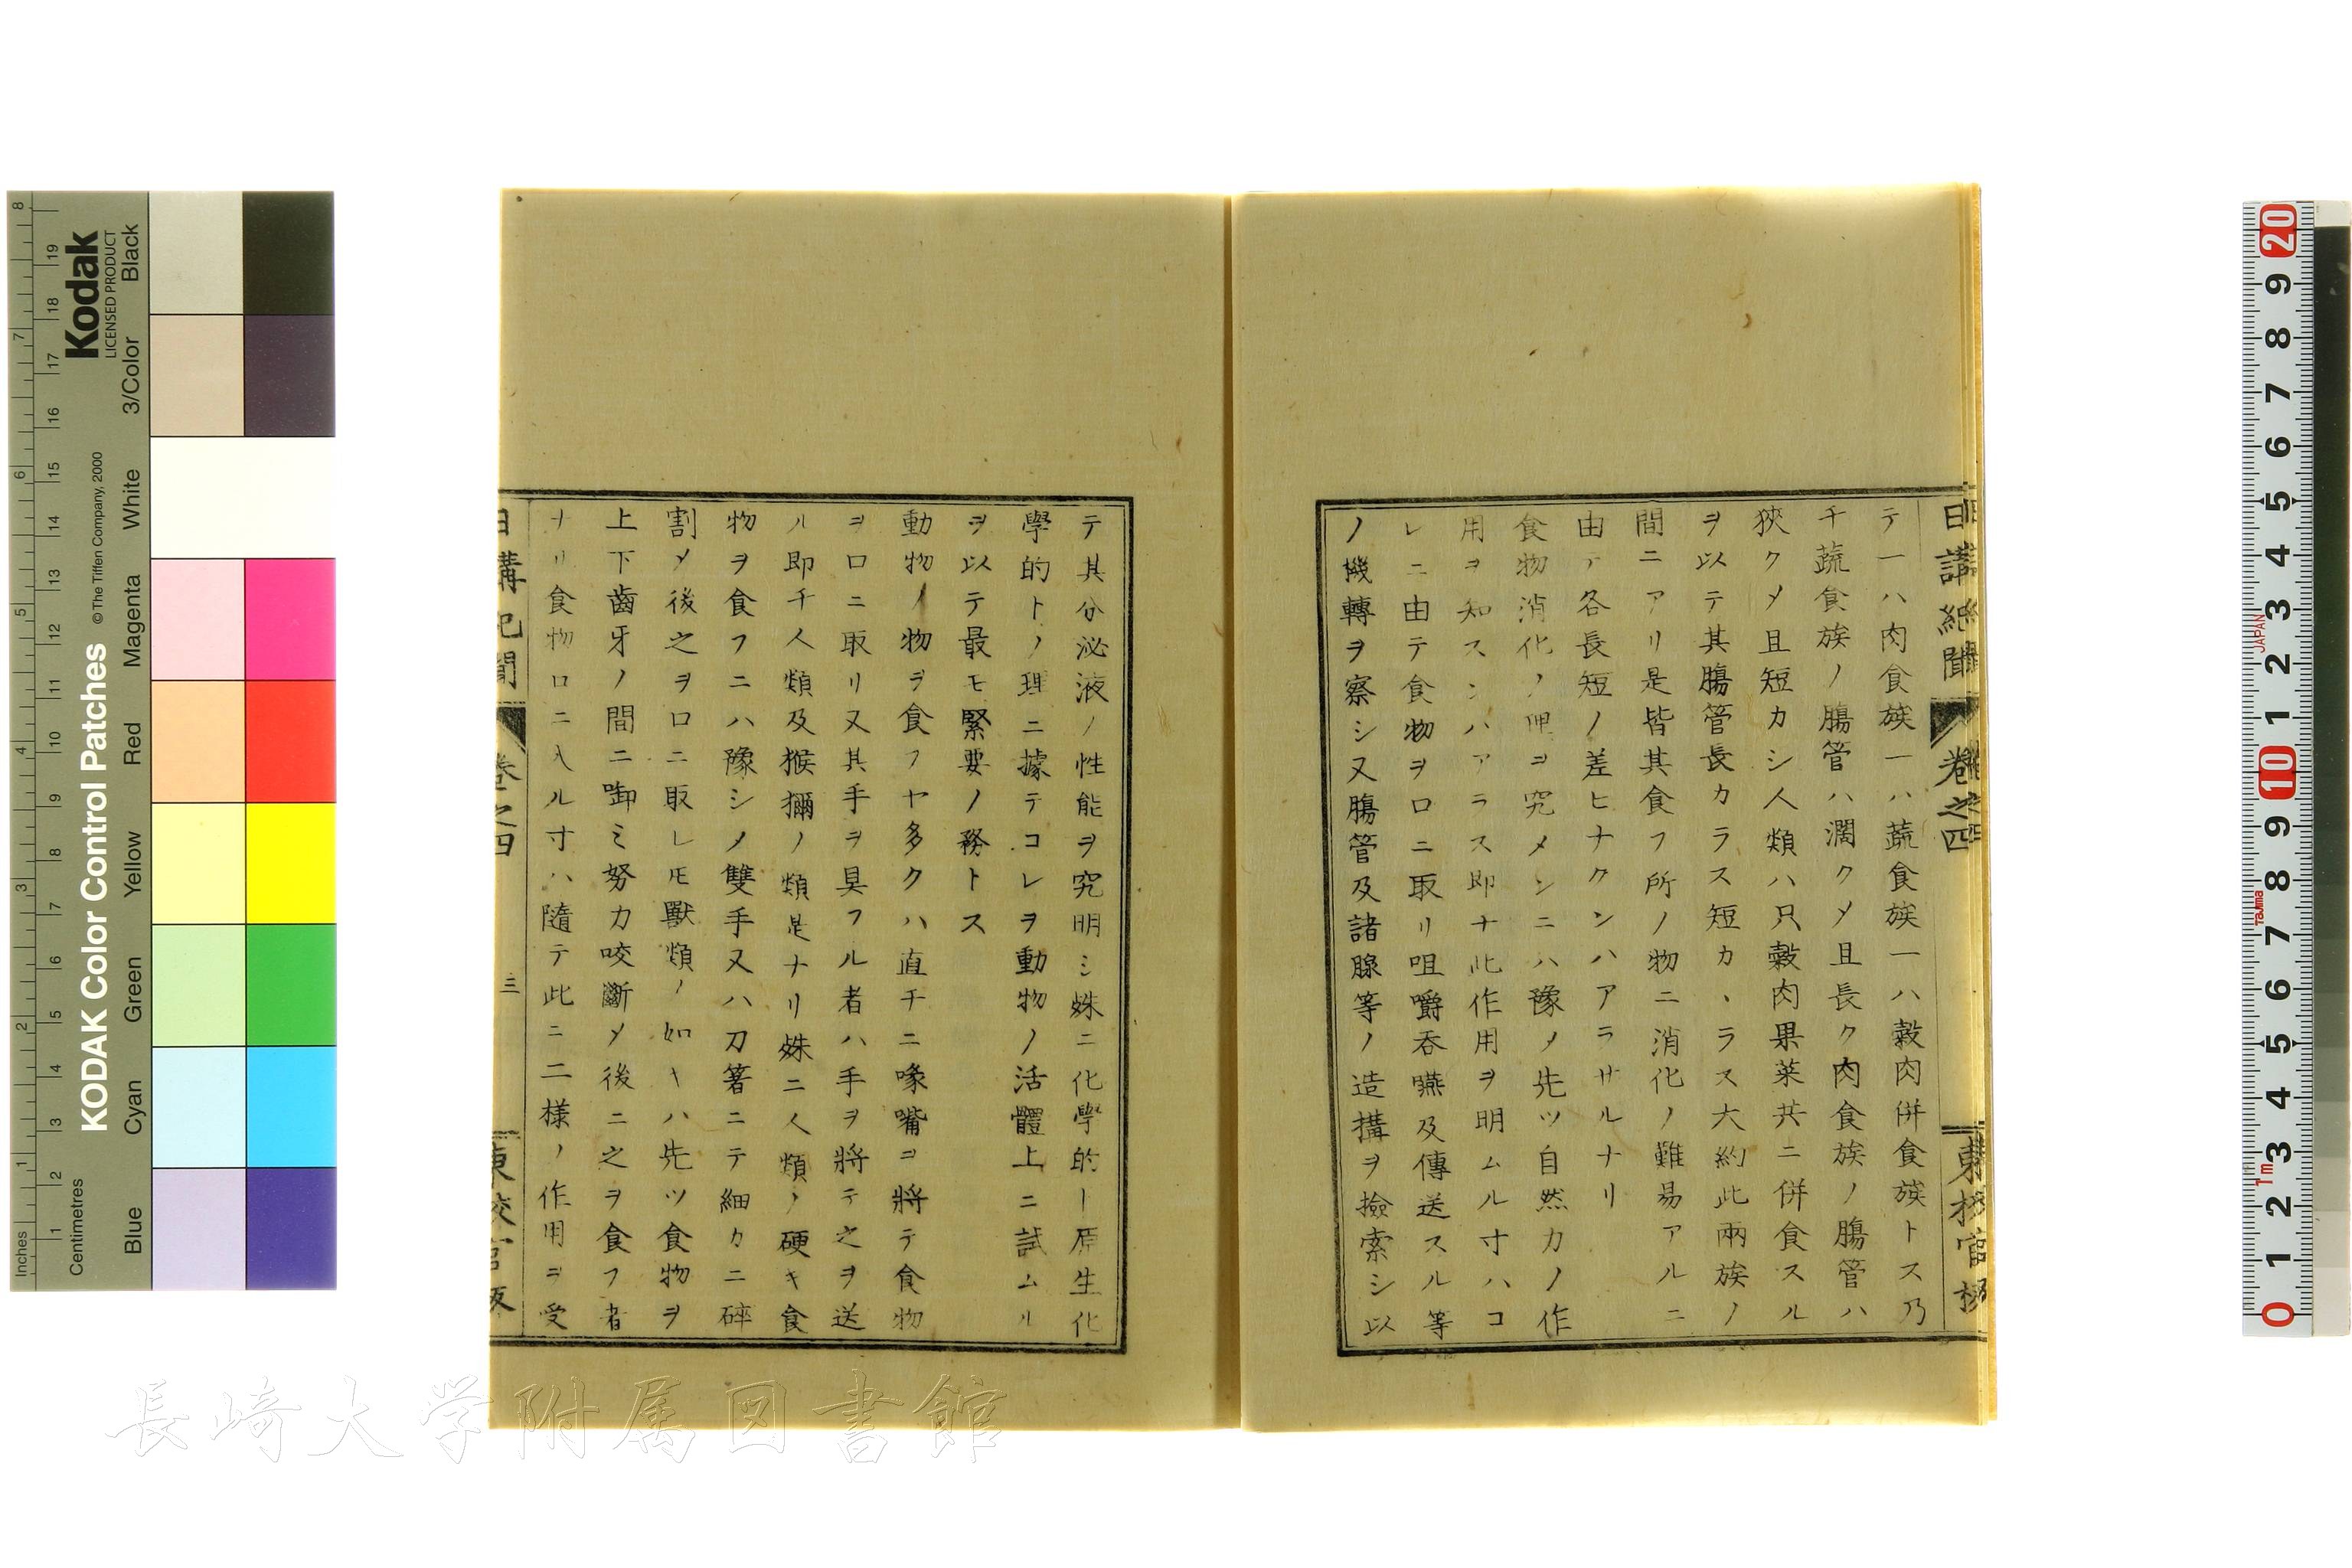 日講紀聞 卷之四 東校官板
テ一ハ肉食族一ハ蔬食族一ハ穀肉併食族トス乃
チ蔬食族ノ膓管ハ濶クメ且長ク肉食族ノ膓管ハ
狹クメ且短カシ人類ハ只穀肉果菜共ニ併食スル
ヲ以テ其膓管長カラス短カヽラス大約此兩族ノ
間ニアリ是皆其食フ所ノ物ニ消化ノ難易アルニ
由テ各長短ノ差ヒナクンハアラサルナリ
食物消化ノ理ヲ究メンニハ豫メ先ツ自然力ノ作
用ヲ知スンハアラス即ナ此作用ヲ明ムル寸ハコ
レニ由テ食物ヲロニ取リ咀嚼呑嚥及傳送スル等
ノ機轉ヲ察シ又膓管及諸腺等ノ造搆ヲ撿索シ以
テ其分泌液ノ性能ヲ究明シ殊ニ化學的ト原生化
學的トノ理ニ據テコレヲ動物ノ活體上ニ試ムル
ヲ以テ最モ緊要ノ務トス
動物ノ物ヲ食フヤ多クハ直チニ喙嘴ヲ將テ食物
ヲ口ニ取リ又其手ヲ具フル者ハ手ヲ將テ之ヲ送
ル即チ人類及猴獼ノ類是ナリ殊ニ人類ノ硬キ食
物ヲ食フニハ豫シメ雙手又ハ刀箸ニテ細カニ碎
割メ後之ヲ口ニ取レ𪜈獸類ノ如キハ先ツ食物ヲ
上下齒牙ノ間ニ啣ミ努力咬斷メ後ニ之ヲ食フ者
ナリ食物口ニ入ル寸ハ隨テ此ニ二様ノ作用ヲ受
日講紀聞 卷之四 三 東校官板
Kodak
LICENSED PRODUCT
KODAK Color Control Patches
© The Tiffen Company, 2000
Inches 1 2 3 4 5 6 7 8
Centimetres 1 2 3 4 5 6 7 8 9 10 11 12 13 14 15 16 17 18 19
Blue Cyan Green Yellow Red Magenta White 3/Color Black
0 1 2 3 4 5 6 7 8 9 10 1 2 3 4 5 6 7 8 9 20
1m Tajima JAPAN
長崎大学附属図書館